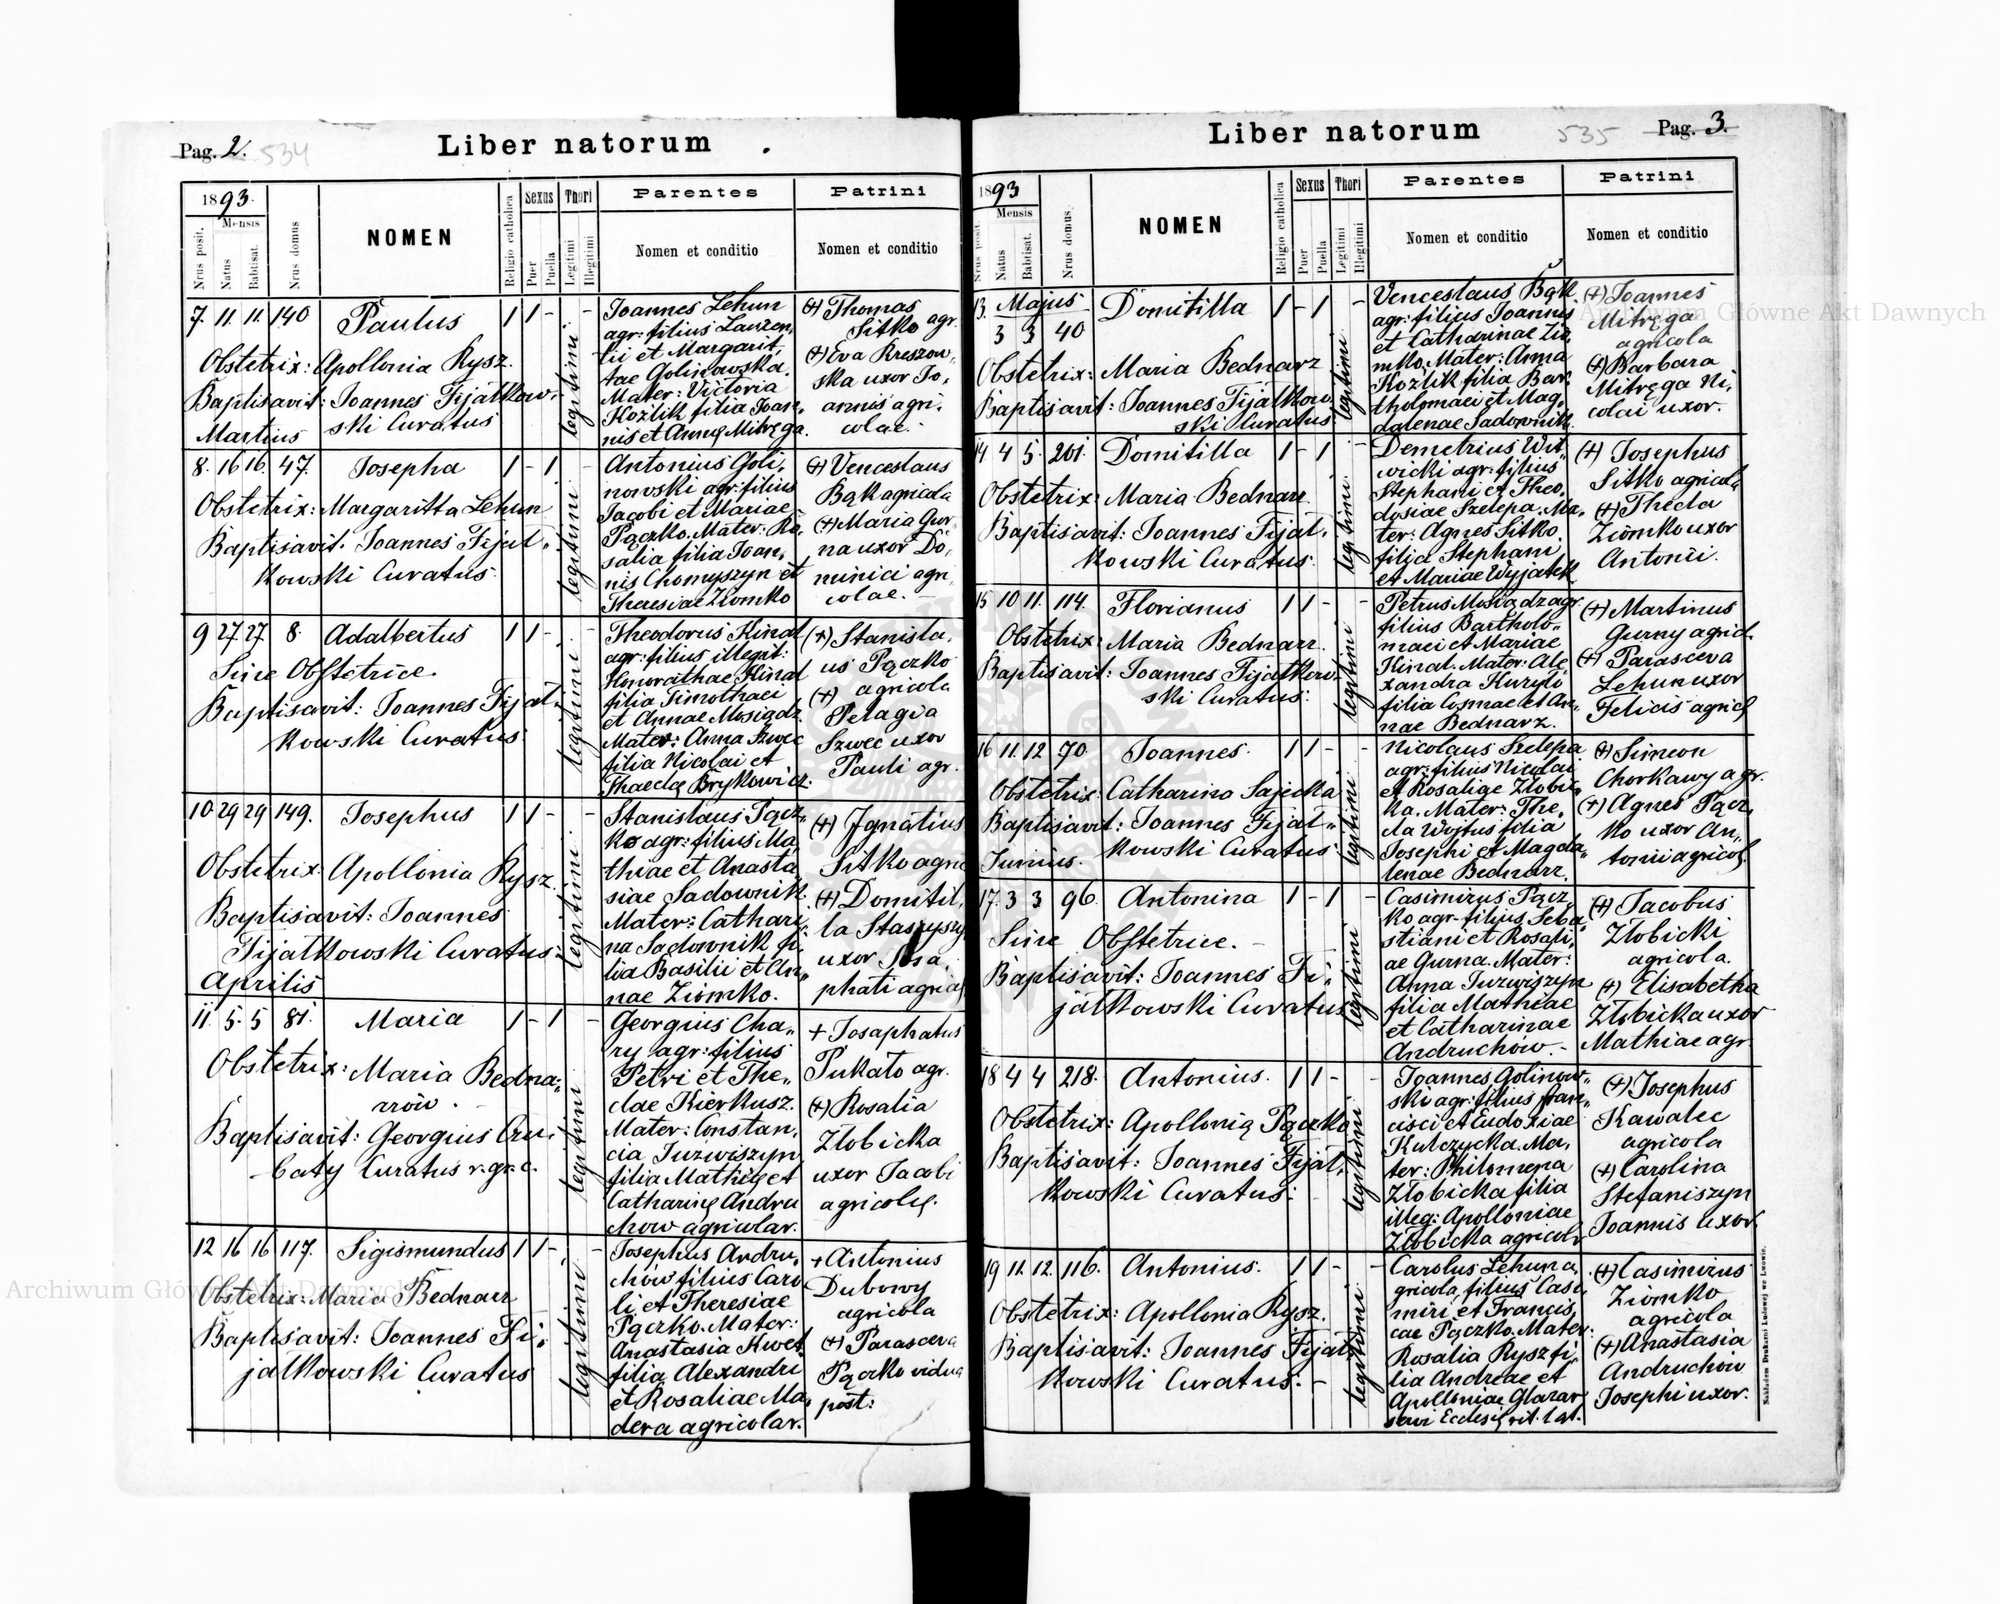 Pag. 2. 534
Liber natorum
1893.
Mensis
Nrus posit.
Natus
Babtisat.
Nrus domus
NOMEN
Religio catholica
Sexus
Puer
Puella
Thori
Legitimi
Illegitimi
Parentes
Nomen et conditio
Patrini
Nomen et conditio
7. 11. 11. 140 Paulus 1 1 - -
Obstetrix: Apollonia Rysz.
Baptisavit: Joannes Fijałkow-
ski Curatus
legitimi
Joannes Lehun
agr: filius Lauren-
tii et Margarit-
tae Golinowska.
Mater: Victoria
Koźlik filia Joan-
nis et Annę Mitręga.
(+) Thomas
Sitko agr.
(+) Eva Kreszow-
ska uxor Jo-
annis agri-
colae.
Martius
8. 16 16. 47. Josepha 1 - 1 -
Obstetrix: Margaritta Lehun
Baptisavit. Joannes Fijał-
kowski Curatus.
legitimi
Antonius Goli-
nowski agr: filius
Jacobi et Mariae
Pączko. Mater: Ro-
salia filia Joan-
nis Chomyszyn et
Theresiae Ziomko
(+) Venceslaus
Bąk agricola
(+) Maria Gur-
na uxor Do-
minici agri-
colae. -
9 27 27 8. Adalbertus 1 1 - -
Sine Obstetrice.
Baptisavit: Joannes Fijał-
kowski Curatus.
legitimi
Theodorus Hinal
agr: filius illegit:
Honorathae Hinal
filia Timothaei
et Annae Mosiądz.
Mater: Anna Szwec
filia Nicolai et
Thaeclę Brykowicz.
(+) Stanisla-
us Pączko
(+) agricola
Pelagia
Szwec uxor
Pauli agr.
10 29 29 149. Josephus 1 1 - -
Obstetrix: Apollonia Rysz.
Baptisavit: Joannes
Fijałkowski Curatus.
legitimi
Stanislaus Pącz-
ko agr: filius Ma-
thiae et Anasta-
siae Sadownik.
Mater: Cathari-
na Sadownik fi-
lia Basilii et An-
nae Ziomko.
(+) Ignatius
Sitko agric
(+) Domitil-
la Staszysz
uxor Josa-
phati agric
Aprilis
11. 5. 5 81. Maria 1 - 1 -
Obstetrix: Maria Bedna-
rów. -
Baptisavit: Georgius
Curatus r. gr. c.
legitimi
Georgius Cha-
ry agr: filius
Petri et The-
clae Kierkusz.
Mater: Constan-
cia Juzwiszyn
filia Mathię et
Catharinę Andru
chow agricolar.
+ Josaphatus
Pukało agr.
(+) Rosalia
Złobicka
uxor Jacobi
agricolę.
12 16 16 117. Sigismundus 1 1 - -
Obstetrix: Maria Bednarz
Baptisavit: Joannes Fi-
jałkowski Curatus
legitimi
Josephus Andru-
chów filius Caro
li et Theresiae
Pączko. Mater:
Anastasia Kwet.
filia Alexandri
et Rosaliae Ma-
dera agricolar.
+ Antonius
Dubowy
agricola
(+) Parasceva
Pączko vidua
post:
Liber natorum
535 Pag. 3.
1893
Mensis
Nrus posit.
Natus
Babtisat.
Nrus domus.
NOMEN
Religio catholica
Sexus
Puer
Puella
Thori
Legitimi
Illegitimi
Parentes
Nomen et conditio
Patrini
Nomen et conditio
13. Majus Domitilla 1 - 1 -
3 3 40
Obstetrix: Maria Bednarz
Baptisavit: Joannes Fijałkow-
ski Curatus.
legitimi
Venceslaus Bąk.
agr: filius Joannis
et Catharinae Zio-
mko. Mater: Anna
Koźlik filia Bar-
tholomaei et Mag-
dalenae Sadownik.
(+) Joannes
Mitręga
agricola
(+) Barbara
Mitręga Ni-
colai uxor.
14 4 5. 201. Domitilla 1 - 1 -
Obstetrix: Maria Bednarz
Baptisavit: Joannes Fijał-
kowski Curatus.
legitimi
Demetrius Wit-
wicki agr: filius
Stephani et Theo-
dosiae Szelepa. Ma-
ter: Agnes Sitko
filia Stephani
et Mariae Wyjatek
(+) Josephus
Sitko agricola
(+) Thecla
Ziomko uxor
Antonii.
15 10 11. 114. Florianus 1 1 - -
Obstetrix: Maria Bednarz.
Baptisavit: Joannes Fijałkow-
ski Curatus.
legitimi
Petrus Mosiądz agr.
filius Bartholo-
maei et Mariae
Hinal. Mater: Ale-
xandra Kuryli
filia Cosmae et An-
nae Bednarz.
(+) Martinus
Gurny agricl.
(+) Parasceva
Lehun uxor
Felicis agricl
16 11. 12 70 Joannes. 1 1 - -
Obstetrix: Catharina Sajecka
Baptisavit: Joannes Fijał-
kowski Curatus.
legitimi
Nicolaus Szelepa
agr: filius Nicolai
et Rosaliae Złobic-
ka. Mater: The-
cla Wojtus filia
Josephi et Magda-
lenae Bednarz.
(+) Simeon
Chorkawy agr.
(+) Agnes Pącz-
ko uxor An-
tonii agricol
Junius.
17. 3 3 96. Antonina 1 - 1 -
Sine Obstetrice. -
Baptisavit: Joannes Fi-
jałkowski Curatus
legitimi
Casimirus Pącz-
ko agr. filius Seba-
stiani et Rosali-
ae Gurna. Mater:
Anna Juzwiszyn
filia Mathiae
et Catharinae
Andruchów. -
(+) Jacobus
Złobicki
agricola.
(+) Elisabetha
Złobicka uxor
Mathiae agr
18 4 4 218. Antonius. 1 1 - -
Obstetrix: Apollonia Pączko
Baptisavit: Joannes Fijał-
kowski Curatus. -
legitimi
Joannes Golinow-
ski agr. filius Fran-
cisci et Eudoxiae
Kulczycka. Ma-
ter: Philomena
Złobicka filia
illeg: Apolloniae
Złobicka agricol
(+) Josephus
Kawalec
agricola
(+) Carolina
Stefaniszyn
Joannis uxor.
19 11. 12. 116. Antonius. 1 1 - -
Obstetrix: Apollonia Rysz.
Baptisavit: Joannes Fijał-
kowski Curatus. -
legitimi
Carolus Lehun a-
gricola, filius Casi-
miri et Francis-
cae Pączko. Mater:
Rosalia Rysz fi-
lia Andreae et
Apolloniae Glazar
Ecclesię rit. lat.
(+) Casimirus
Ziomko
agricola
(+) Anastasia
Andruchów
Josephi uxor.
Nakładem Drukarni Ludowej we Lwowie.
Archiwum Główne Akt Dawnych
Archiwum Główne Akt Dawnych